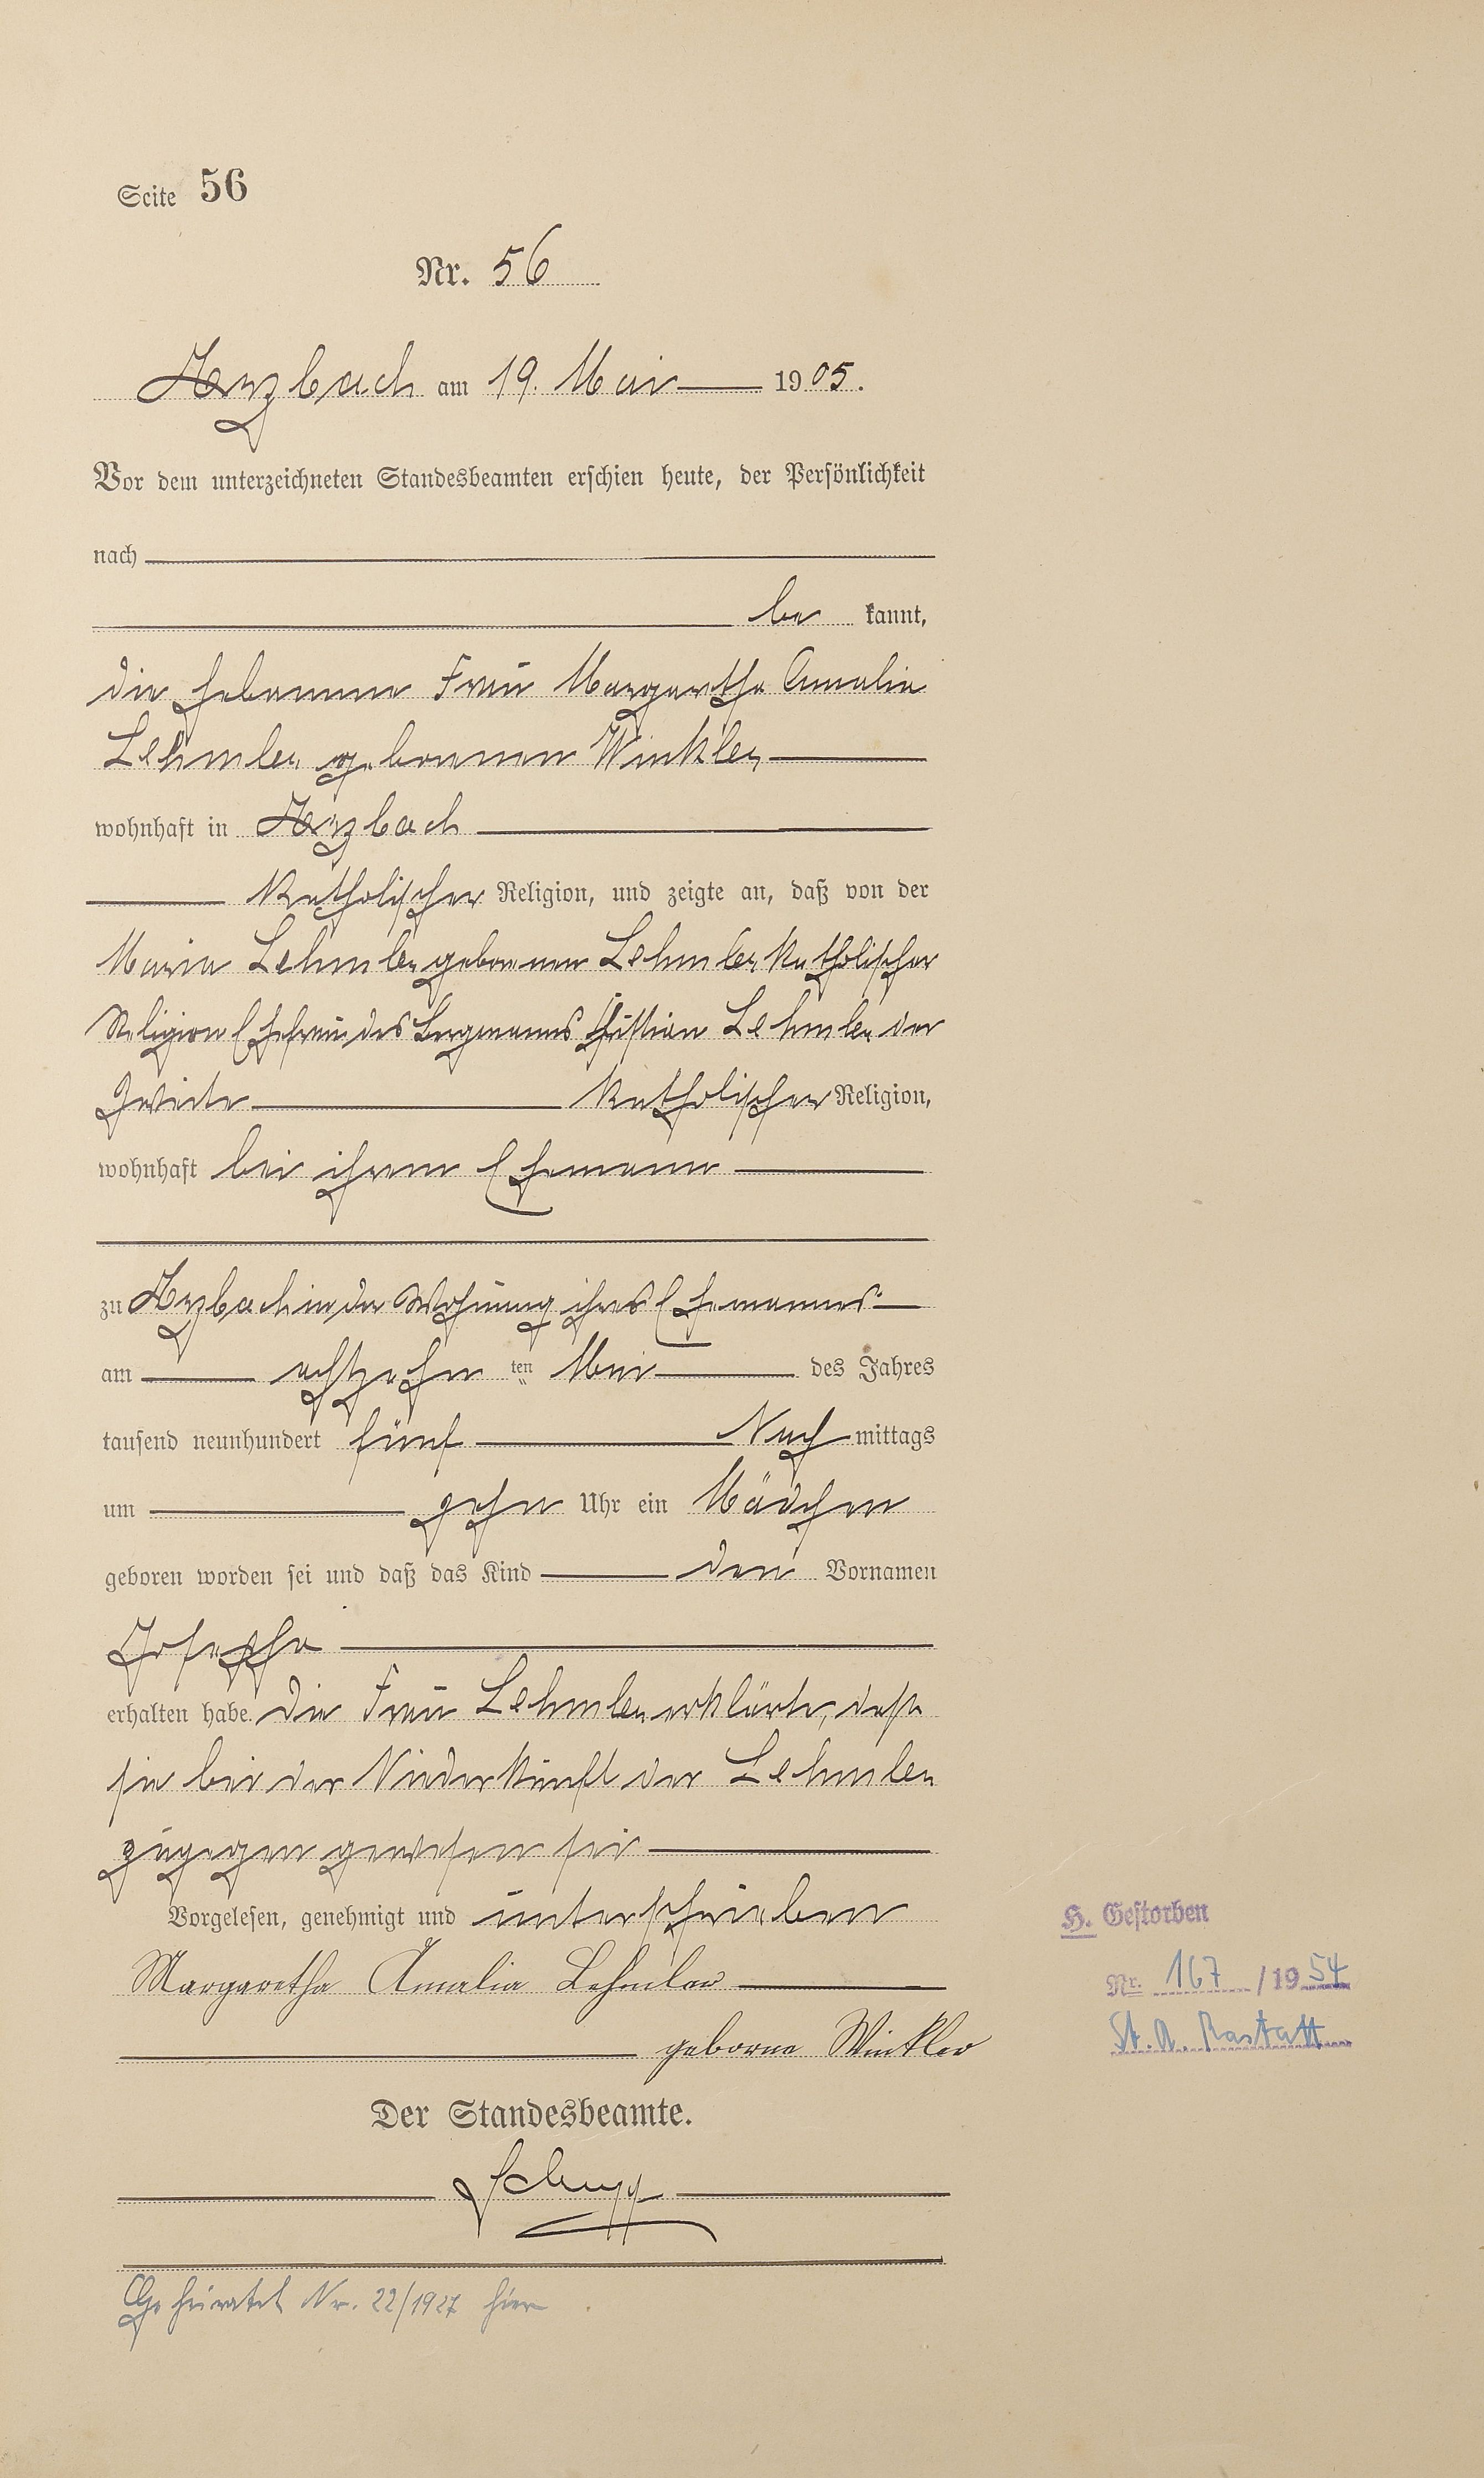 Seite 56
Nr. 56
Arzbach am 19. Mai 1905.
Vor dem unterzeichneten Standesbeamten erschien heute, der Persönlichkeit
nach
be kannt,
die Hebamme Frau Margaretha Amalia
Lehmler geborenen Winkler
wohnhaft in Arzbach
katholischer Religion, und zeigte an, daß von der
Maria Lehmler geborenen Lehmler katholischer
Religion Ehefrau des Bergmanns Christian Lehmler der
Zweite katholischer Religion,
wohnhaft bei ihrem Ehemann
zu Arzbach in der Wohnung ihres Ehemannes
am achtzehn ten Mai des Jahres
tausend neunhundert fünf Nach mittags
um zehn Uhr ein Mädchen
geboren worden sei und daß das Kind den Vornamen
Josepha
erhalten habe. Die Frau Lehmler erklärte, daß
sie bei der Niederkunft der Lehmler
zugegen gewesen sei
Vorgelesen, genehmigt und unterschrieben
Margaretha Amalia Lehmler
geborne Winkler
Der Standesbeamte.
Schupp
Geheiratet Nr. 22/1927 hier
H. Gestorben
Nr. 167 / 1954
St. A. Rastatt